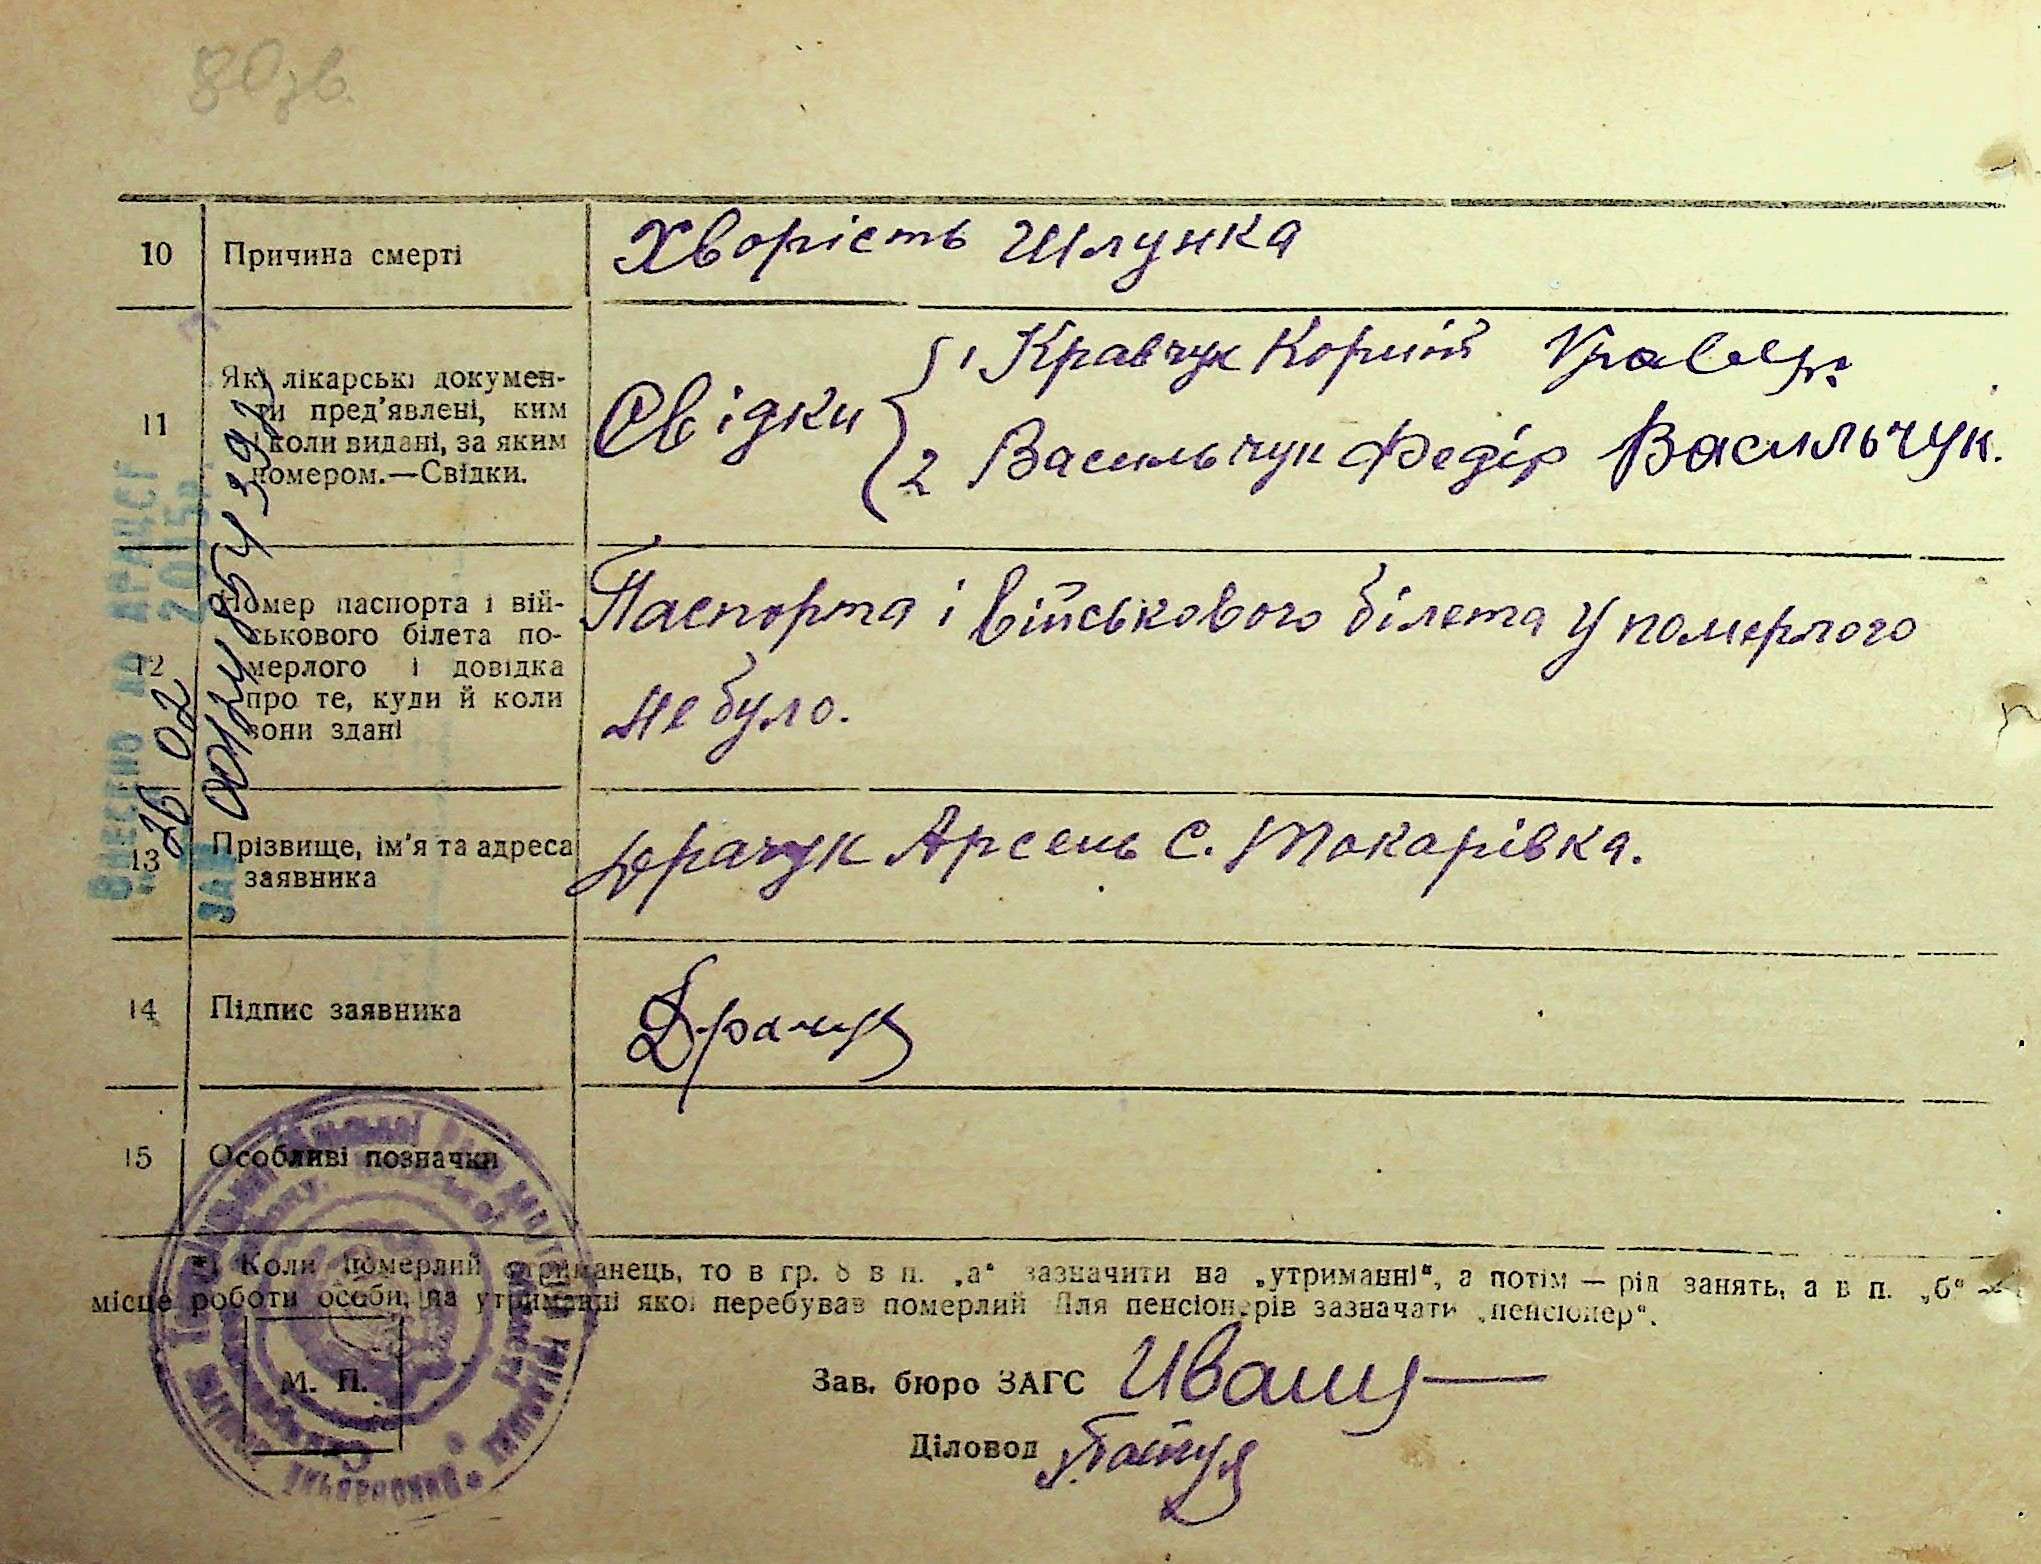 80зв.
10 Причина смерті Хворість шлунка
11 Які лікарські докумен-
ти пред'явлені, ким
і коли видані, за яким
номером.—Свідки.
Свідки { 1 Кравчук Корній
2 Васильчук Федір Васильчук.
12 Номер паспорта і вій-
ськового білета по-
мерлого і довідка
про те, куди й коли
вони здані
Паспорта і військового білета у померлого
не було.
13 Прізвище, ім'я та адреса
заявника
Драчук Арсень С. Токарівка.
14 Підпис заявника Драчук
15 Особливі позначки
*) Коли померлий утриманець, то в гр. 8 в п. „а“ зазначити на „утриманні“, а потім — рід занять, а в п. „б“ —
місце роботи особи, на утриманні якої перебував померлий Для пенсіонерів зазначати „пенсіонер“.
М. П.
Зав. бюро ЗАГС
Діловод
Внесено до ДРАЦСГ
26 02 2015р.
ЗА №